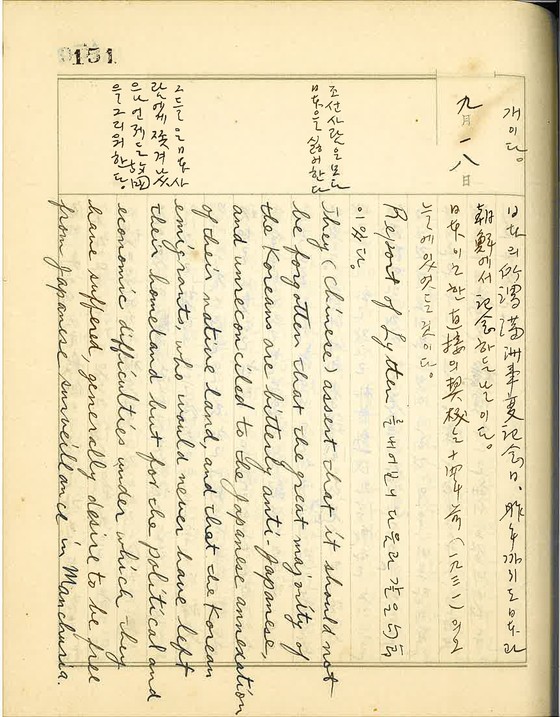 0151
개이다.
九月一八日
日本의 所謂 滿洲事変記念日. 昨年까지도 日本과
朝鮮에서 記念하든 날이다.
日本이 한 直接의 契機는 十四年前 (一九三一)의 오
늘에 있었든 것이다.
Report of Lytten 를 내어보니 다음과 같은 句節
이 있다.
조선사람은 모다
日本을 싫어한다
They (Chinese) assert that it should not
be forgotten that the great majority of
the Koreans are bitterly anti-Japanese,
and unreconciled to the Japanese annexation
of their native land, and that the Korean
emigrants, who would never have left
their homeland but for the political and
economic difficulties under which they
have suffered, generally desire to be free
from Japanese surveillance in Manchuria.
그들은 日本사
람에게 쫓겨났
으나 언제든 故國
을 그리워한다.